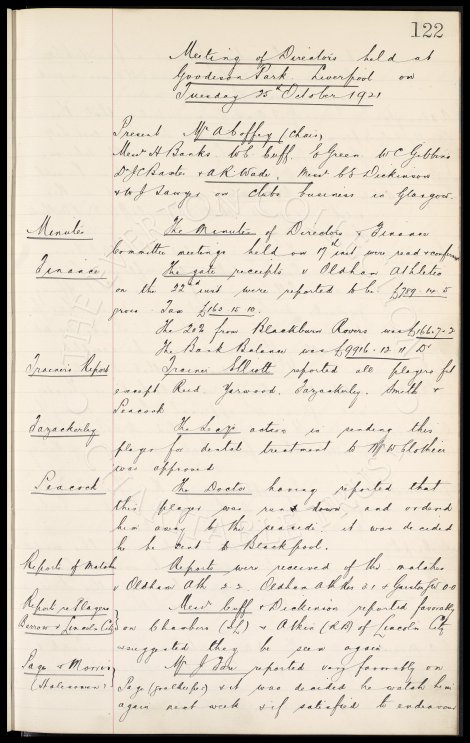 122
Meeting of Directors held at
Goodison Park, Liverpool on
Tuesday 25th October 1921
Present Mr A Coffey (Chair)
Messrs H Banks. W C Cuff. E Green. W C Gibbins
Dr J C Baxter & A R Wade. Messrs C E Dickinson
& W J Sawyer on Clubs business in Glasgow.
Minutes The Minutes of Directors & Finance
Committee meetings held on 17th inst were read & confirmed
Finance The gate receipts v Oldham Athletic
on the 22nd inst were reported to be £789-14-5
gross. Tax £163.15.10.
The 20% from Blackburn Rovers was £166.7-2
The Bank Balance was £9916-12-11 Dr
Trainers Report Trainer Elliott reported all players fit
except Reid Yarwood, Fazackerley. Smith &
Peacock
Fazackerley The Secy's action in sending this
player for dental treatment to Mr W Clothier
was approved
Peacock The Doctor having reported that
this player was run down and ordered
him away to the seaside it was decided
he be sent to Blackpool.
Reports of Matches Reports were received of the matches
v Oldham Ath 2 2 Oldham Ath Res 3 1 & Garston Gas 0.0
Reports re Players Messrs Cuff & Dickinson reported favorably
Barrow & Lincoln City on Chambers (I L) & Atkin (R B) of Lincoln City
& suggested they be seen again.
Page & Morris Mr J reported very favorably on
(Halesowen) Page (goalkeeper) & it was decided he watch him
again next week & if satisfied to endeavour